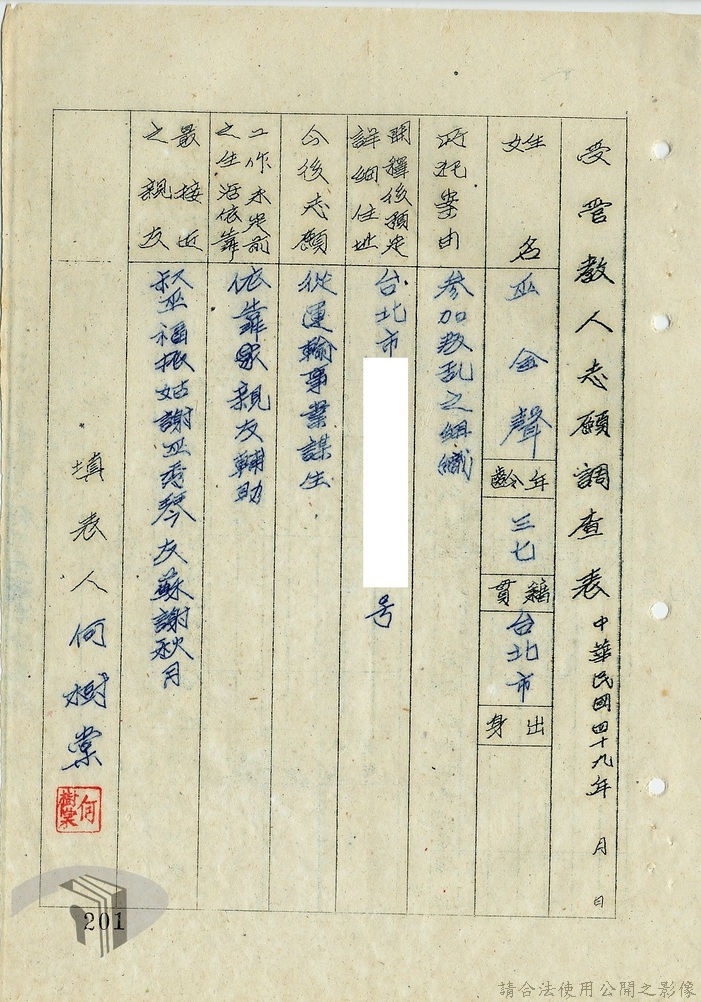 受管教人志願調查表 中華民國四十九年 月 日
姓名 巫金聲 年齡 三七 籍貫 台北市 出身
所犯案由 參加叛乱之組織
開釋後預定詳細住址 台北市 号
今後志願 從運輸事業謀生
工作未定前之生活依靠 依靠家親友輔助
最接近之親友 叔巫福振姑謝巫秀琴友蘇謝秋月
填表人 何樹棠
何樹棠
201
請合法使用公開之影像